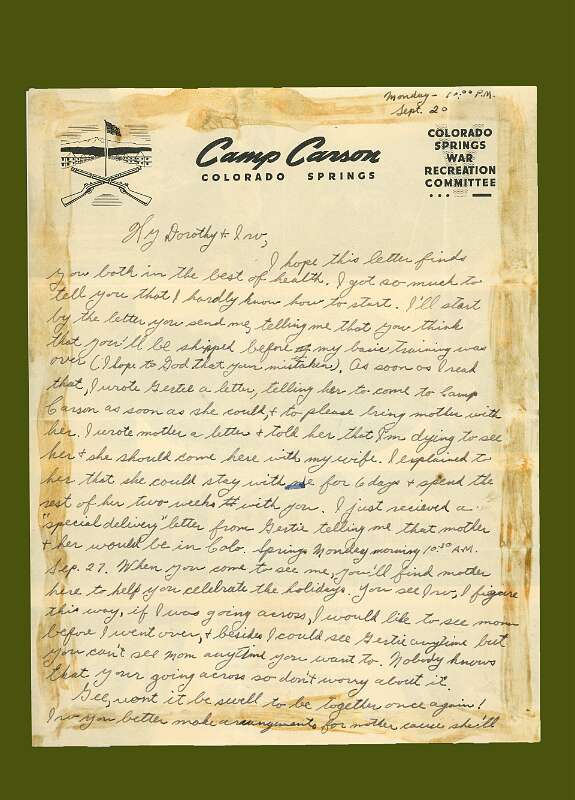 Monday - 10:00 P.M.
Sept. 20
Camp Carson
COLORADO SPRINGS
COLORADO
SPRINGS
WAR
RECREATION
COMMITTEE
Hy Dorothy & Irv,
I hope this letter finds
you both in the best of health. I got so much to
tell you that I hardly know how to start. I'll start
by the letter you send me, telling me that you think
that you'll be shipped before my basic training was
over (I hope to God that your mistaken). As soon as I read
that, I wrote Gertie a letter, telling her to come to Camp
Carson as soon as she could, & to please bring mother with
her. I wrote mother a letter & told her that I'm dying to see
her & she should come here with my wife. I explained to
her that she could stay with me for 6 days & spend the
rest of her two weeks with you. I just recieved a
"special delivery" letter from Gertie telling me that mother
& her would be in Colo. Springs Monday morning 10:30 A.M.
Sep. 27. When you come to see me, you'll find mother
here to help you celebrate the holidays. You see Irv, I figure
this way, if I was going across, I would like to see mom
before I went over, & besides I could see Gertie anytime but
you can't see mom anytime you want to. Nobody knows
that your going across so don't worry about it.
Gee, wont it be swell to be together once again!
Irv you better make arrangements for mother cause she'll